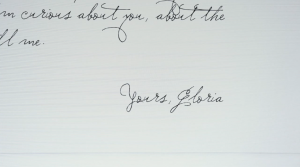 m curious about you, about the
ll me.
Yours, Gloria